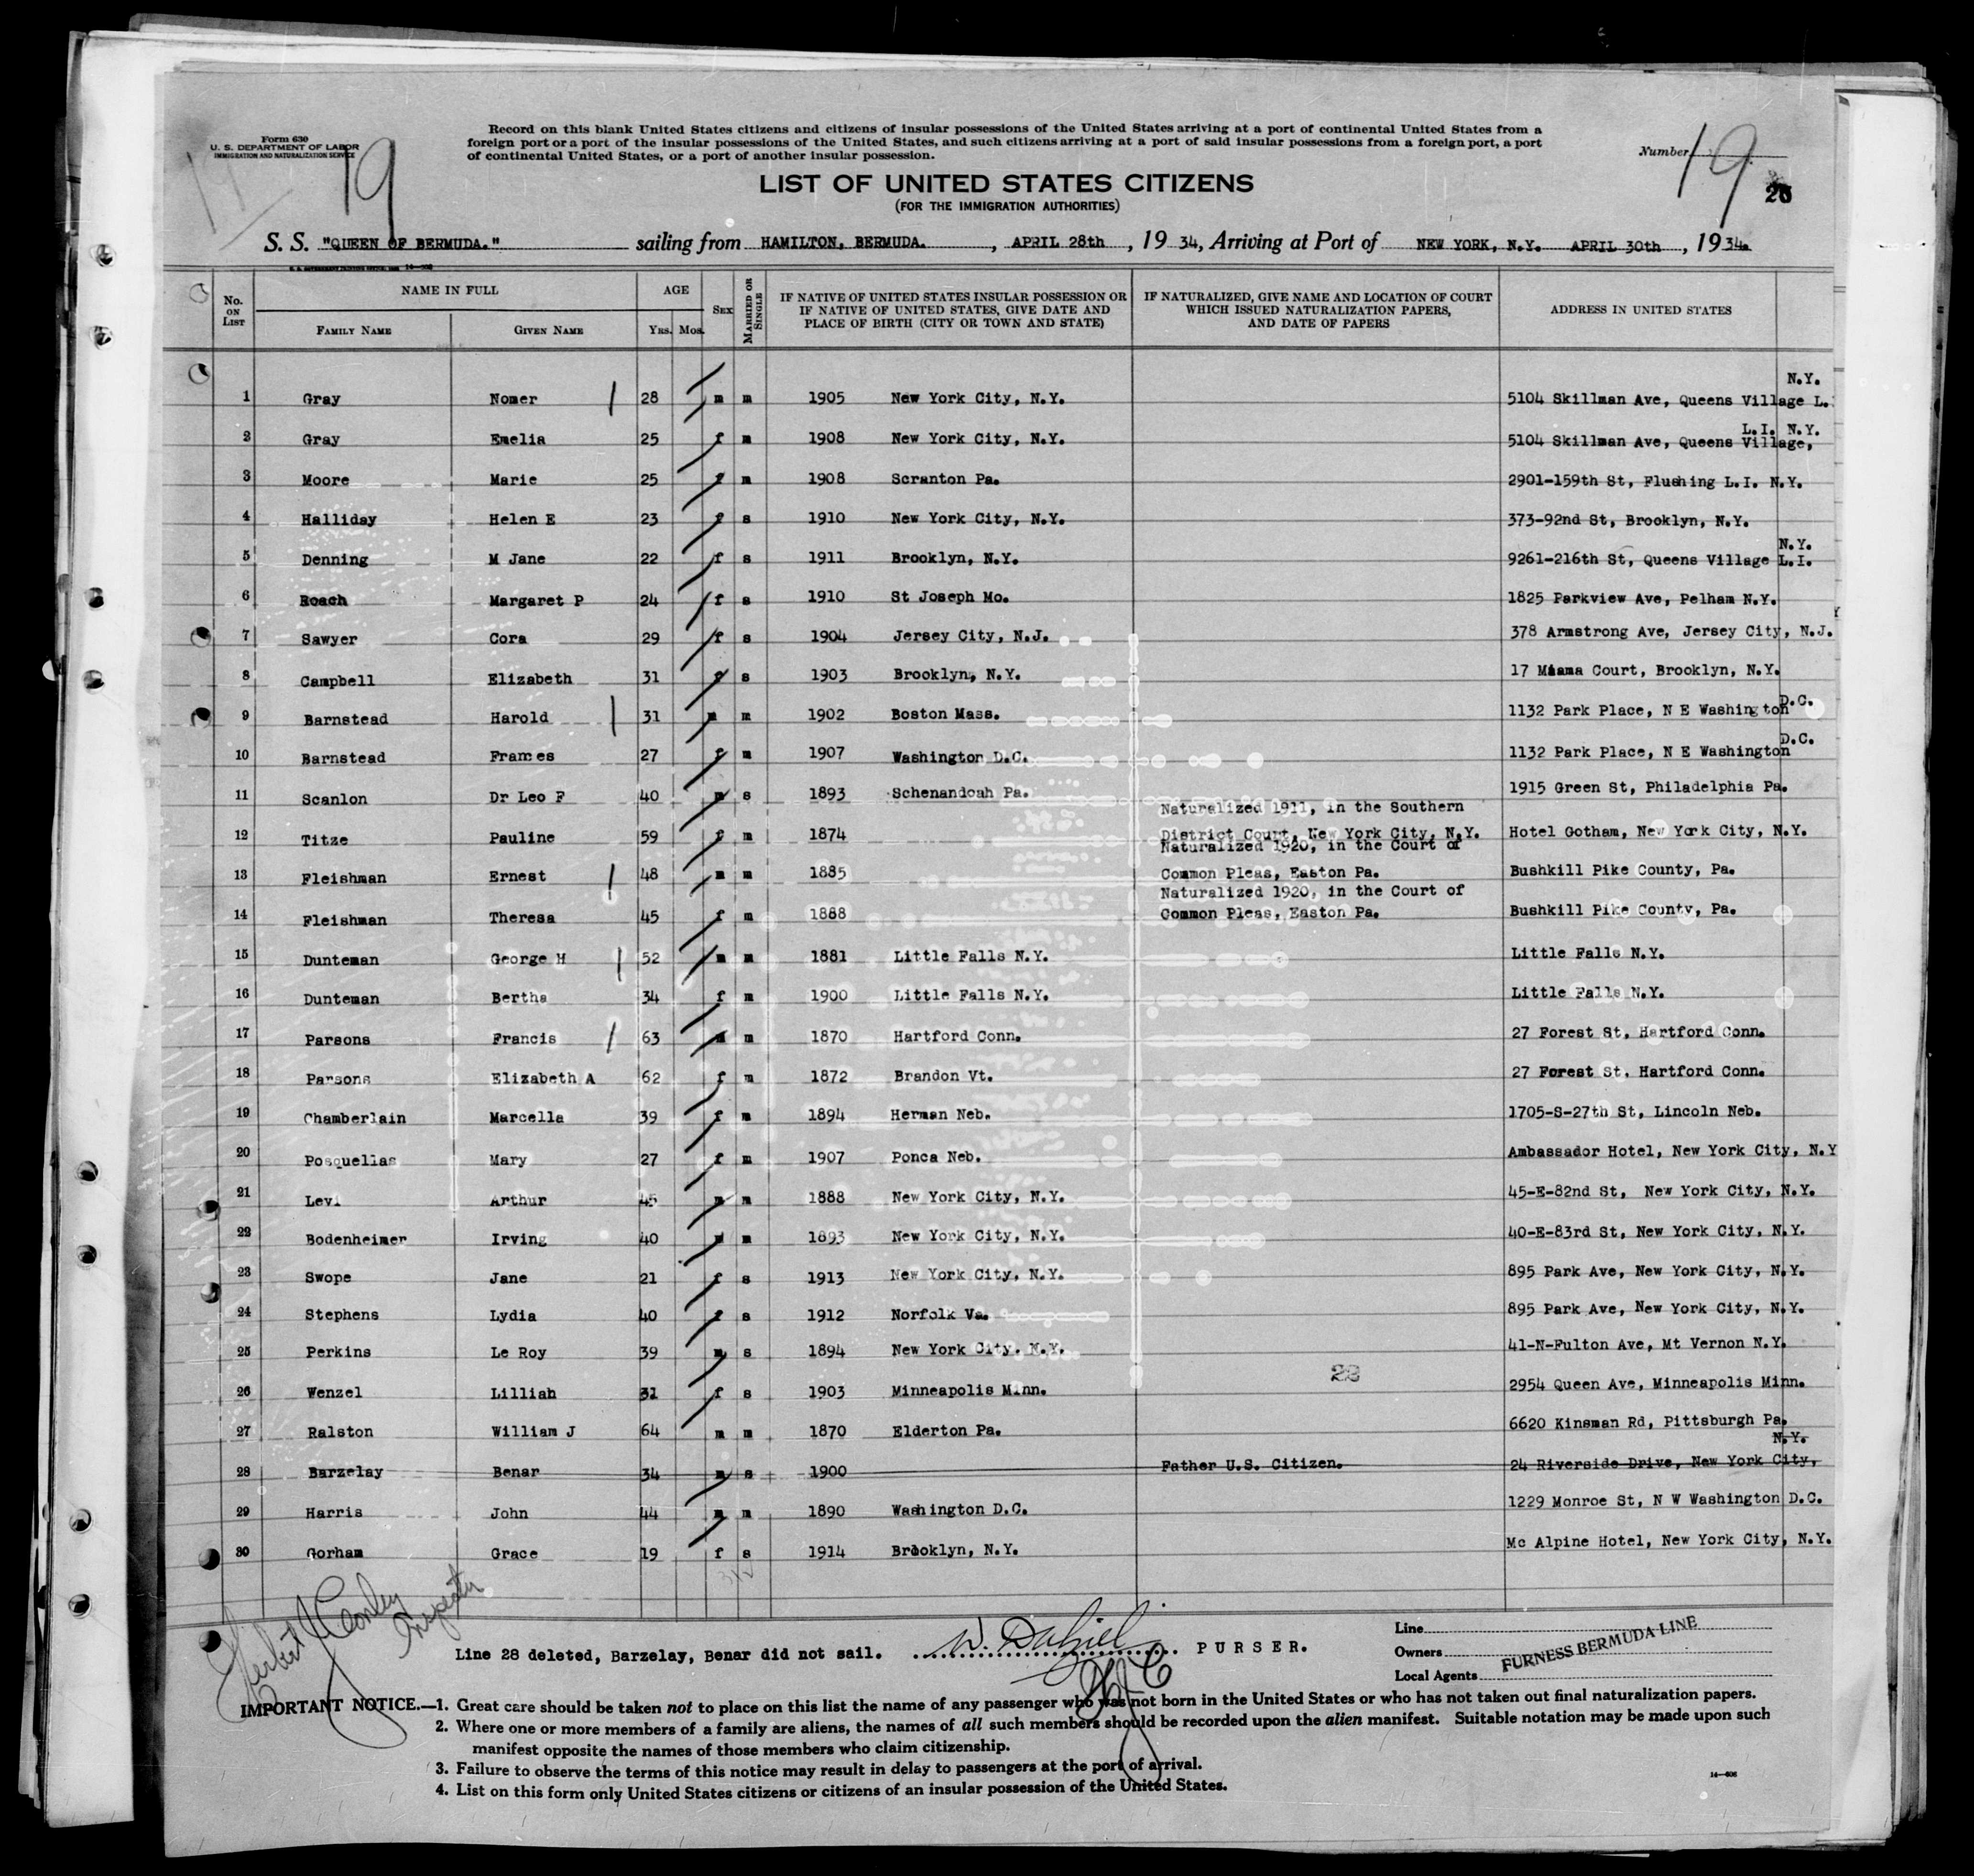 Form 630
U. S. DEPARTMENT OF LABOR
IMMIGRATION AND NATURALIZATION SERVICE
19
Record on this blank United States citizens and citizens of insular possessions of the United States arriving at a port of continental United States from a
foreign port or a port of the insular possessions of the United States, and such citizens arriving at a port of said insular possessions from a foreign port, a port
of continental United States, or a port of another insular possession.
Number 19
LIST OF UNITED STATES CITIZENS
(FOR THE IMMIGRATION AUTHORITIES)
S. S. "QUEEN OF BERMUDA." sailing from HAMILTON, BERMUDA. , APRIL 28th , 19 34, Arriving at Port of NEW YORK, N.Y. APRIL 30th , 19 34.
No. ON LIST NAME IN FULL FAMILY NAME GIVEN NAME AGE YRS. MOS. SEX MARRIED OR SINGLE IF NATIVE OF UNITED STATES INSULAR POSSESSION OR IF NATIVE OF UNITED STATES, GIVE DATE AND PLACE OF BIRTH (CITY OR TOWN AND STATE) IF NATURALIZED, GIVE NAME AND LOCATION OF COURT WHICH ISSUED NATURALIZATION PAPERS, AND DATE OF PAPERS ADDRESS IN UNITED STATES
N.Y.
1 Gray Nomer 28 m m 1905 New York City, N.Y. 5104 Skillman Ave, Queens Village L.
L.I. N.Y.
2 Gray Emelia 25 f m 1908 New York City, N.Y. 5104 Skillman Ave, Queens Village,
3 Moore Marie 25 f m 1908 Scranton Pa. 2901-159th St, Flushing L.I. N.Y.
4 Halliday Helen E 23 f s 1910 New York City, N.Y. 373-92nd St, Brooklyn, N.Y.
N.Y.
5 Denning M Jane 22 f s 1911 Brooklyn, N.Y. 9261-216th St, Queens Village L.I.
6 Roach Margaret P 24 f s 1910 St Joseph Mo. 1825 Parkview Ave, Pelham N.Y.
7 Sawyer Cora 29 f s 1904 Jersey City, N.J. 378 Armstrong Ave, Jersey City, N.J.
8 Campbell Elizabeth 31 f s 1903 Brooklyn, N.Y. 17 Miama Court, Brooklyn, N.Y.
D.C.
9 Barnstead Harold 31 m m 1902 Boston Mass. 1132 Park Place, N E Washington
D.C.
10 Barnstead Frances 27 f m 1907 Washington D.C. 1132 Park Place, N E Washington
11 Scanlon Dr Leo F 40 m s 1893 Schenandoah Pa. 1915 Green St, Philadelphia Pa.
Naturalized 1911, in the Southern
12 Titze Pauline 59 f m 1874 District Court, New York City, N.Y. Hotel Gotham, New York City, N.Y.
Naturalized 1920, in the Court of
13 Fleishman Ernest 48 m m 1885 Common Pleas, Easton Pa. Bushkill Pike County, Pa.
Naturalized 1920, in the Court of
14 Fleishman Theresa 45 f m 1888 Common Pleas, Easton Pa. Bushkill Pike County, Pa.
15 Dunteman George H 52 m m 1881 Little Falls N.Y. Little Falls N.Y.
16 Dunteman Bertha 34 f m 1900 Little Falls N.Y. Little Falls N.Y.
17 Parsons Francis 63 m m 1870 Hartford Conn. 27 Forest St, Hartford Conn.
18 Parsons Elizabeth A 62 f m 1872 Brandon Vt. 27 Forest St, Hartford Conn.
19 Chamberlain Marcella 39 f m 1894 Herman Neb. 1705-S-27th St, Lincoln Neb.
20 Posquellas Mary 27 f m 1907 Ponca Neb. Ambassador Hotel, New York City, N.Y
21 Levi Arthur 45 m m 1888 New York City, N.Y. 45-E-82nd St, New York City, N.Y.
22 Bodenheimer Irving 40 m m 1893 New York City, N.Y. 40-E-83rd St, New York City, N.Y.
23 Swope Jane 21 f s 1913 New York City, N.Y. 895 Park Ave, New York City, N.Y.
24 Stephens Lydia 40 f s 1912 Norfolk Va. 895 Park Ave, New York City, N.Y.
25 Perkins Le Roy 39 m s 1894 New York City, N.Y. 41-N-Fulton Ave, Mt Vernon N.Y.
26 Wenzel Lilliah 31 f s 1903 Minneapolis Minn. 2954 Queen Ave, Minneapolis Minn.
27 Ralston William J 64 m m 1870 Elderton Pa. 6620 Kinsman Rd, Pittsburgh Pa.
N.Y.
28 Barzelay Benar 34 m s 1900 Father U.S. Citizen. 24 Riverside Drive, New York City,
29 Harris John 44 m m 1890 Washington D.C. 1229 Monroe St, N W Washington D.C.
30 Gorham Grace 19 f s 1914 Brooklyn, N.Y. Mc Alpine Hotel, New York City, N.Y.
Inspector
Line 28 deleted, Barzelay, Benar did not sail. PURSER.
Line
Owners FURNESS BERMUDA LINE
Local Agents
IMPORTANT NOTICE.—1. Great care should be taken not to place on this list the name of any passenger who was not born in the United States or who has not taken out final naturalization papers.
2. Where one or more members of a family are aliens, the names of all such members should be recorded upon the alien manifest. Suitable notation may be made upon such
manifest opposite the names of those members who claim citizenship.
3. Failure to observe the terms of this notice may result in delay to passengers at the port of arrival.
4. List on this form only United States citizens or citizens of an insular possession of the United States.